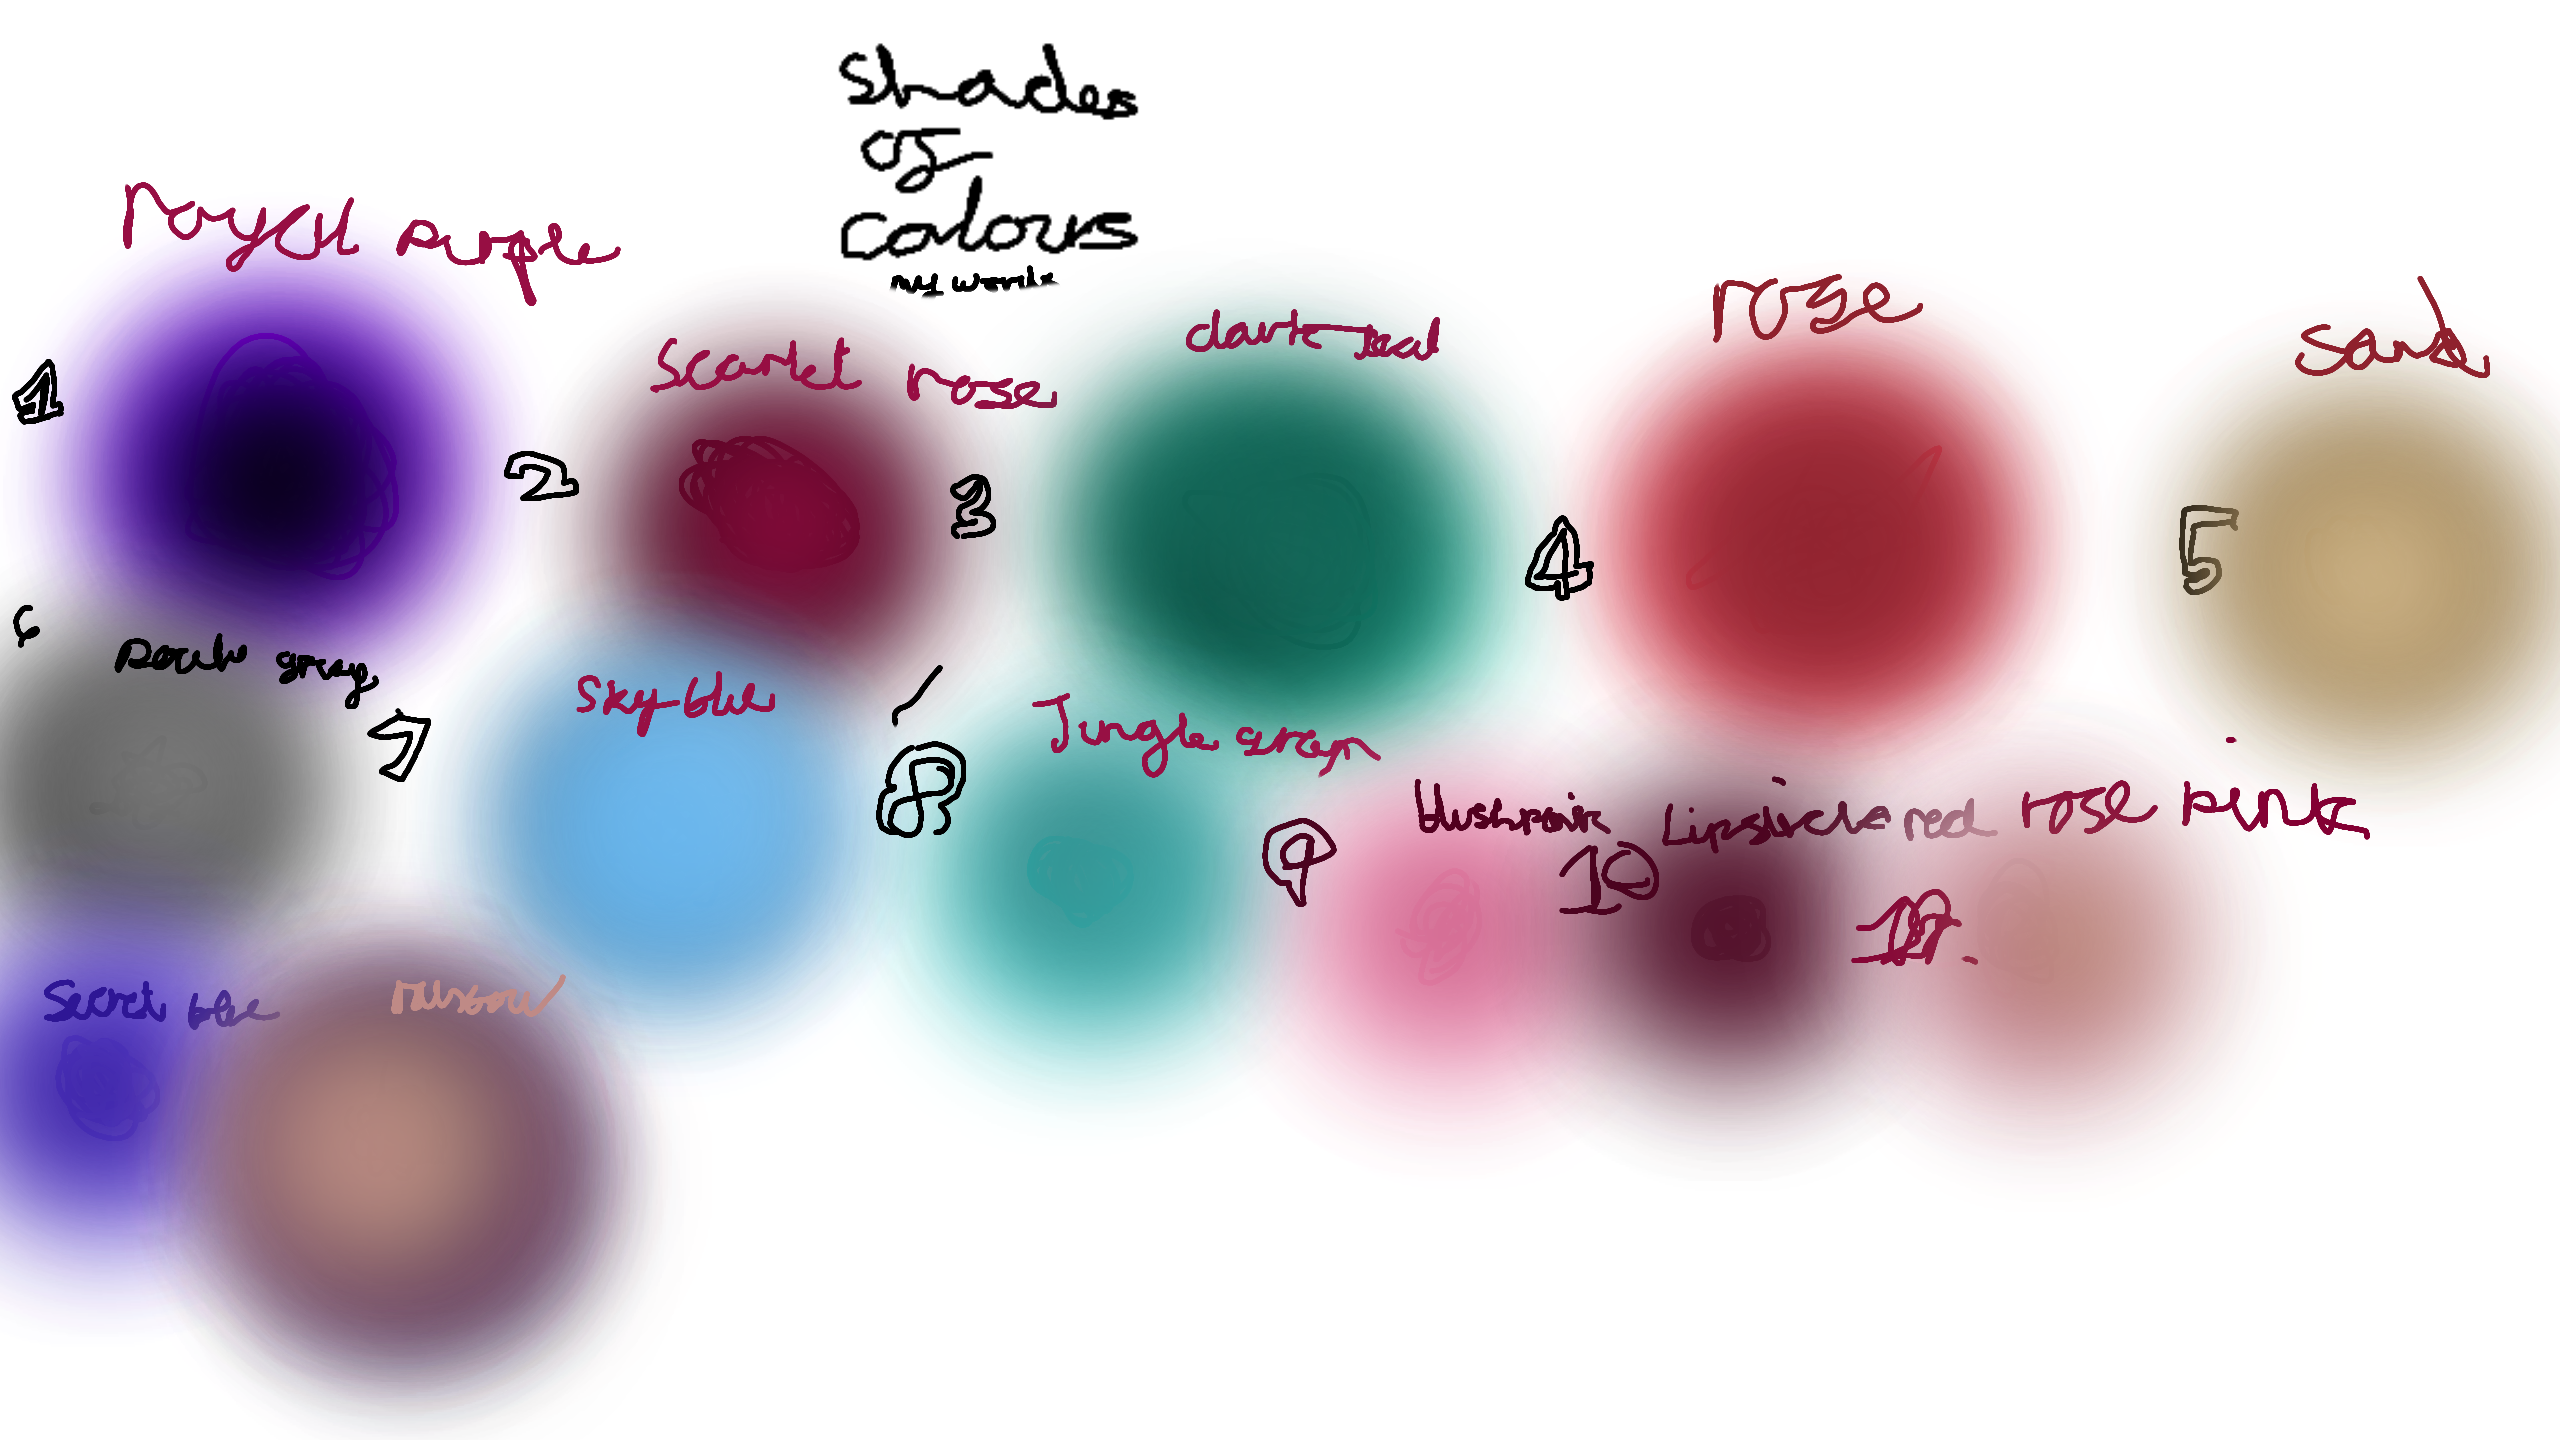 Shades
of
colours
my words
royal purple
Scarlet rose
dark teal
rose
sand
1
2
3
4
5
6
gray
7
Sky blue
8
Jungle green
9
blush pink
10
Lipstick red
rose pink
Secret blue